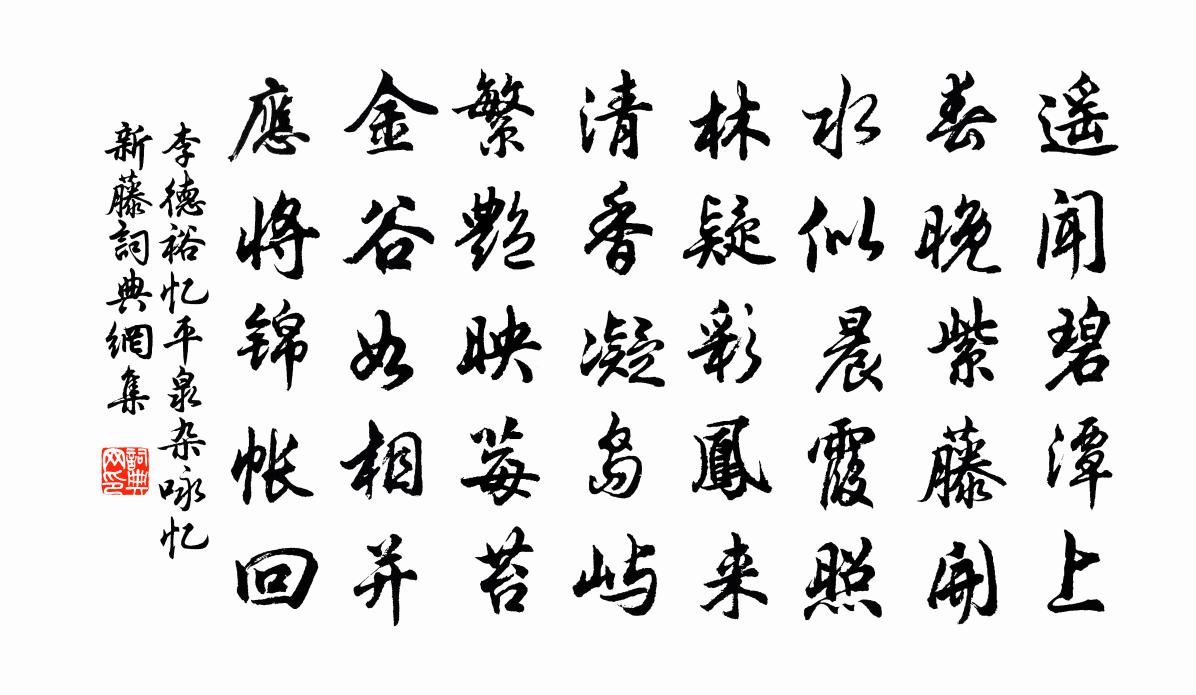 遥闻碧潭上
春晚紫藤開
水似晨霞照
林疑彩鳳来
清香凝島屿
繁艷映莓苔
金谷如相并
應將锦帐回
李德裕忆平泉杂咏忆
新藤詞典網集
詞典网印